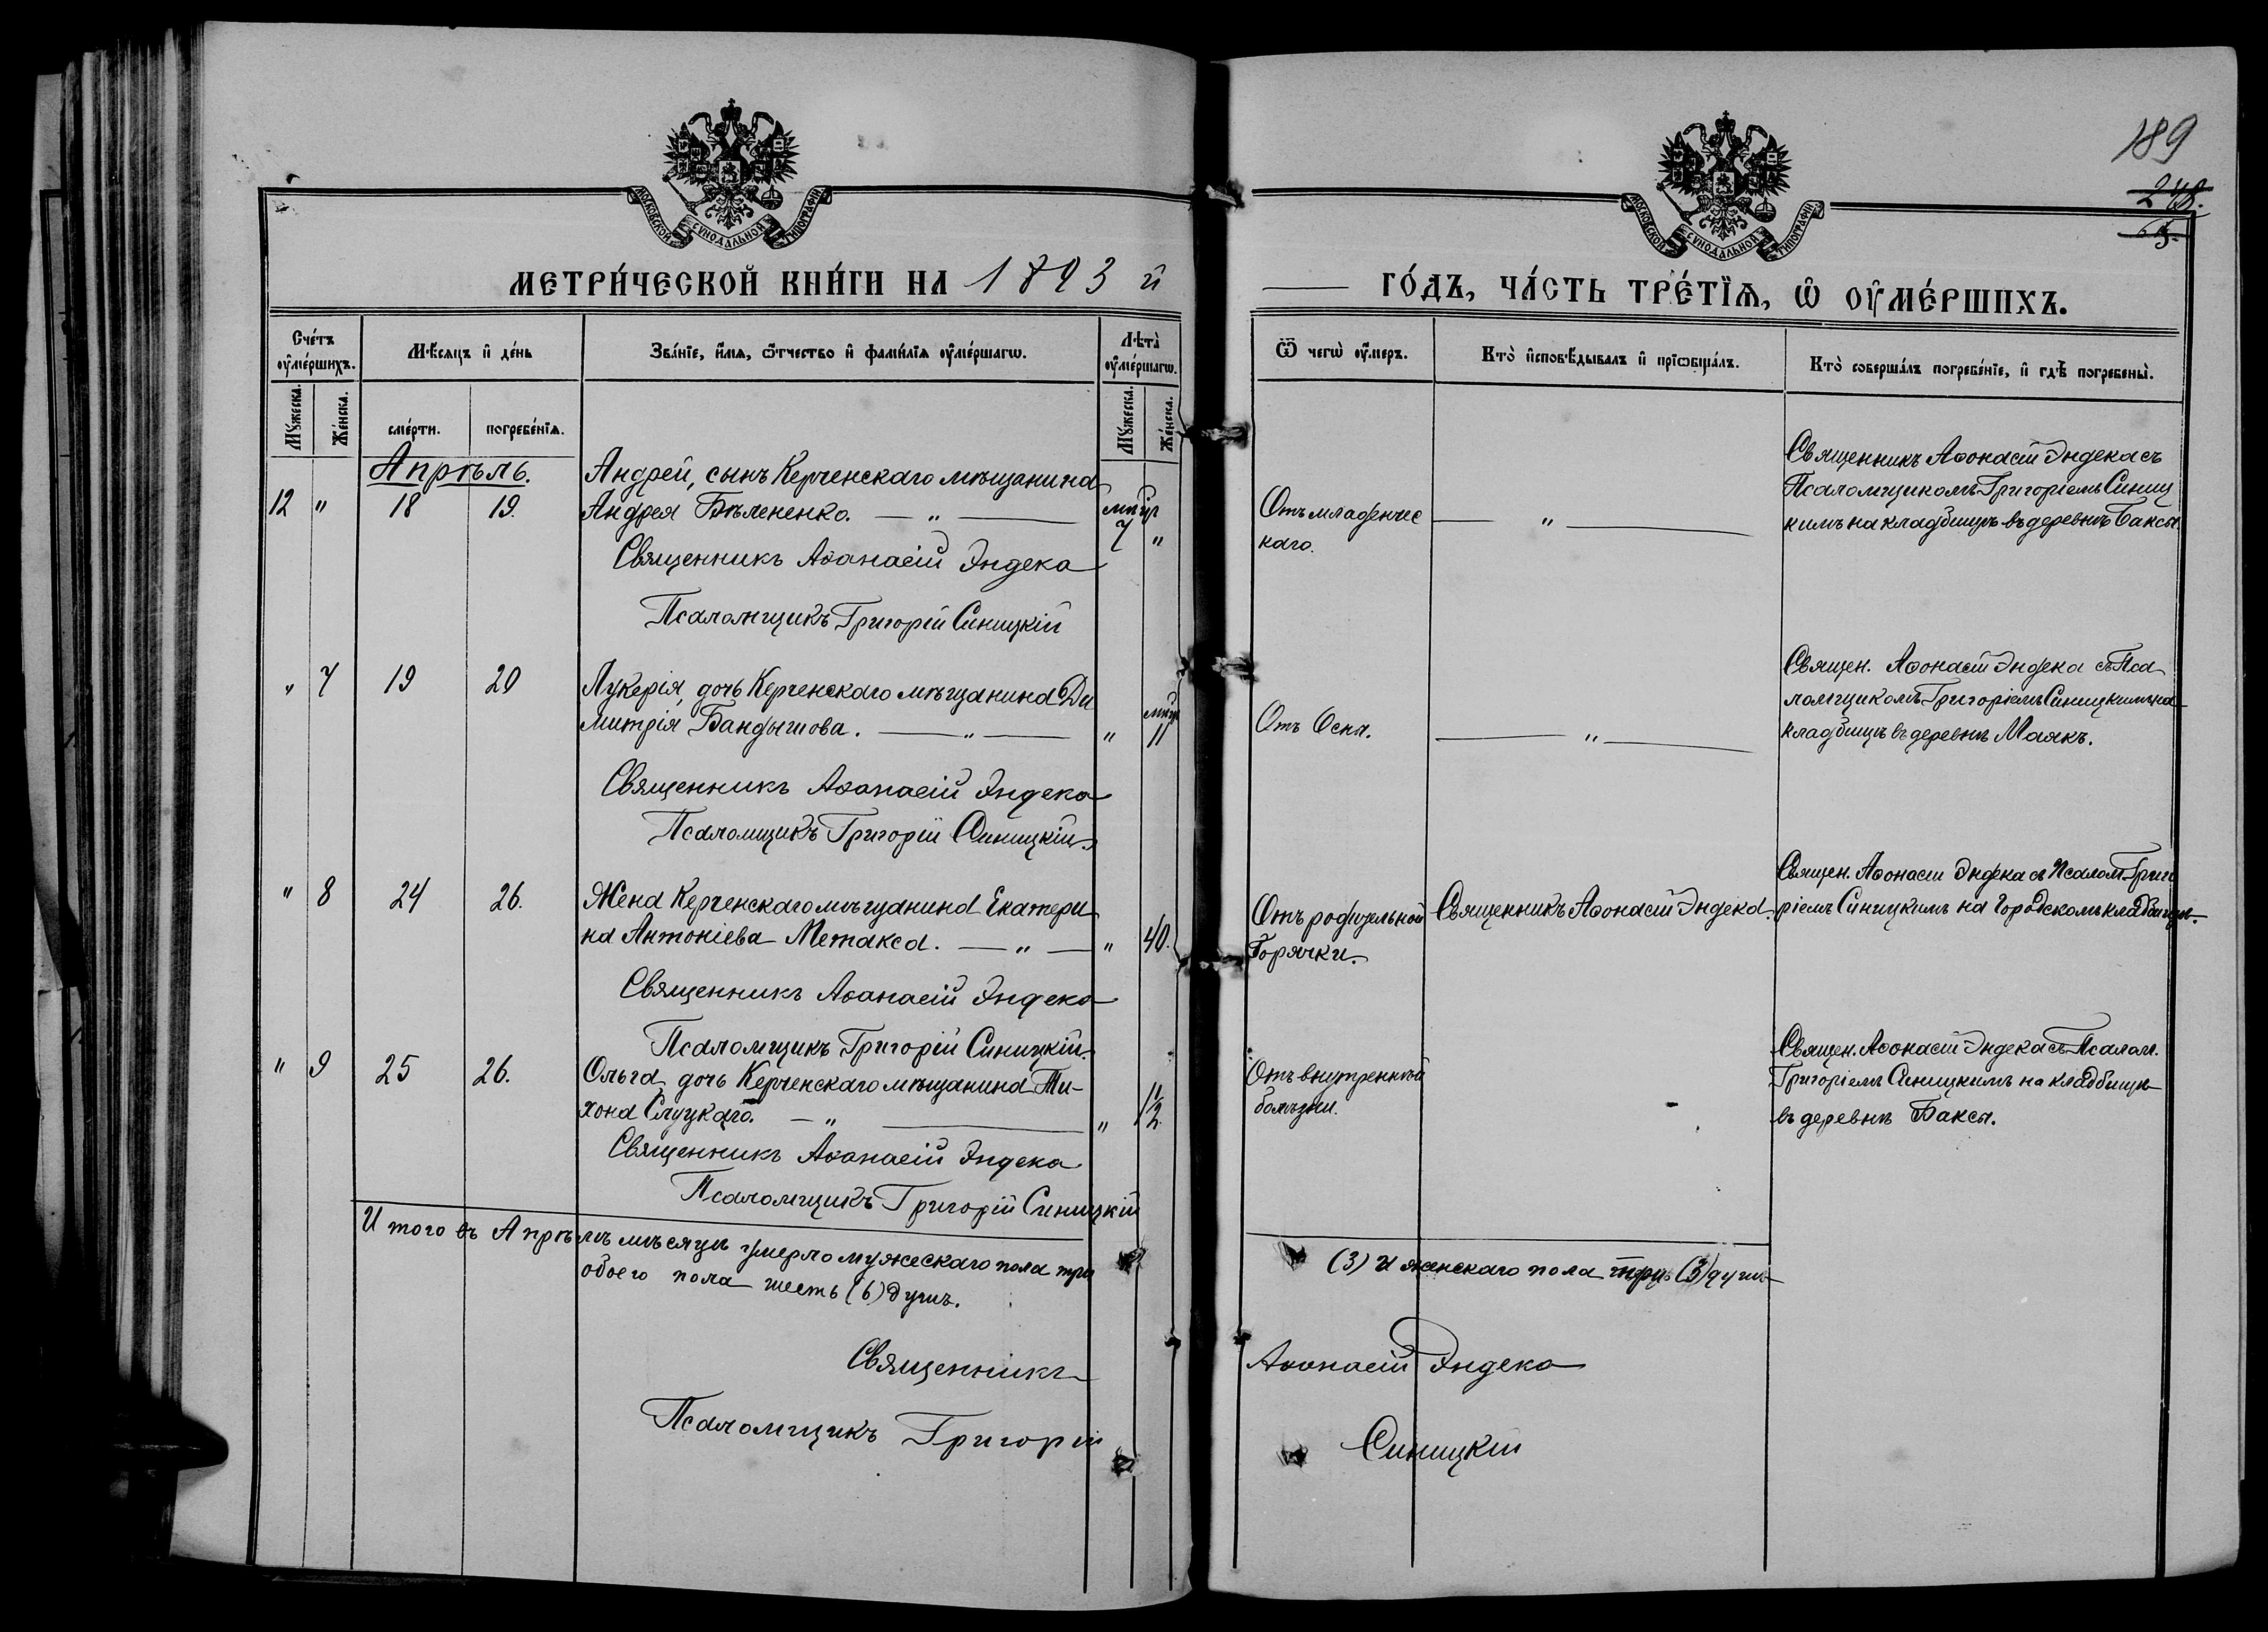 189
248.
МОСКОВСКОЙ СѴНОДАЛЬНОЙ ТИПОГРАФІИ
МОСКОВСКОЙ СѴНОДАЛЬНОЙ ТИПОГРАФІИ
МЕТРИ́ЧЕСКОЙ КНИ́ГИ НА 1893 й
ГО́ДЪ, ЧА́СТЬ ТРЕ́ТЇѦ, Ѡ҆ ОУ҆МЕ́РШИХЪ.
Сче́тъ оу҆ме́ршихъ.
Мѣ́сяцъ и҆ де́нь
Зва́нїе, и҆́мѧ, ѻ҆́тчество и҆ фами́лїѧ оу҆ме́ршагѡ.
Лѣ́та оу҆ме́ршагѡ.
Ѿ чегѡ̀ оу҆́меръ.
Кто̀ и҆сповѣ́дывалъ и҆ прїѡбща́лъ.
Кто̀ соверша́лъ погребе́нїе, и҆ гдѣ̀ погребены̀.
Мꙋ́жеска. Же́нска.
сме́рти. погребе́нїѧ.
Мꙋ́жеска. Же́нска.
Апрѣль.
Андрей, сынъ Керченскаго мѣщанина
12 " 18 19. Андрея Бѣлененко. — " —
7 "
Священникъ Аѳанасій Эндека
Псаломщикъ Григорій Синицкій
Отъ младенчес
каго.
— " —
Священникъ Аѳонасій Эндека съ
Псаломщикомъ Григоріемъ Синиц
кимъ на кладбищѣ въ деревнѣ Баксы.
" 7 19 20 Лукерія, дочь Керченскаго мѣщанина Ди
митрія Бандышова. — " — " 11
Священникъ Аѳанасій Эндека
Псаломщикъ Григорій Синицкій.
Отъ Оспы.
— " —
Священ. Аѳонасій Эндека съ Пса
ломщикомъ Григоріемъ Синицкимъ на
кладбищѣ въ деревнѣ Маякъ.
" 8 24 26. Жена Керченскаго мѣщанина Екатери
на Антоніева Метакса. — " — " 40.
Священникъ Аѳанасій Эндека
Псаломщикъ Григорій Синицкій.
Отъ родильной
Горячки.
Священникъ Аѳонасій Эндека.
Священ. Аѳонасій Эндека съ Псалом. Григо
ріемъ Синицкимъ на Городскомъ кладбищѣ.
" 9 25 26. Ольга, дочь Керченскаго мѣщанина Ти-
хона Слуцкаго. — " — " 1½
Священникъ Аѳанасій Эндека
Псаломщикъ Григорій Синицкій
Отъ внутренней
болѣзни.
Священ. Аѳонасій Эндека съ Псалом.
Григоріемъ Синицкимъ на кладбищѣ
въ деревнѣ Баксы.
Итого въ Апрѣлѣ мѣсяцѣ умерло мужескаго пола три
(3) и женскаго пола три (3) души
обоего пола шесть (6) душъ.
Священникъ
Аѳанасій Эндека
Псаломщикъ Григорій
Синицкій